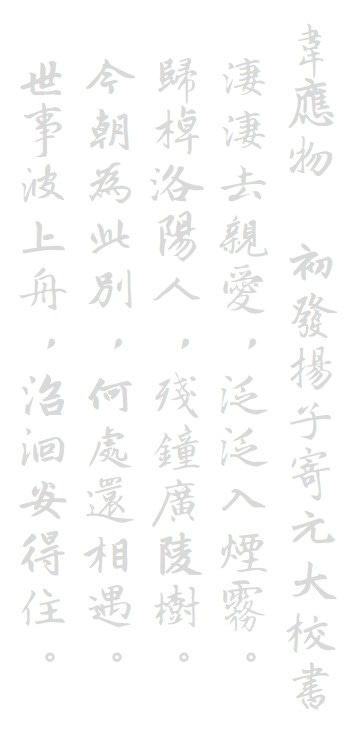 韋應物　初發揚子寄元大校書
淒淒去親愛，泛泛入煙霧。
歸棹洛陽人，殘鐘廣陵樹。
今朝為此別，何處還相遇。
世事波上舟，沿洄安得住。